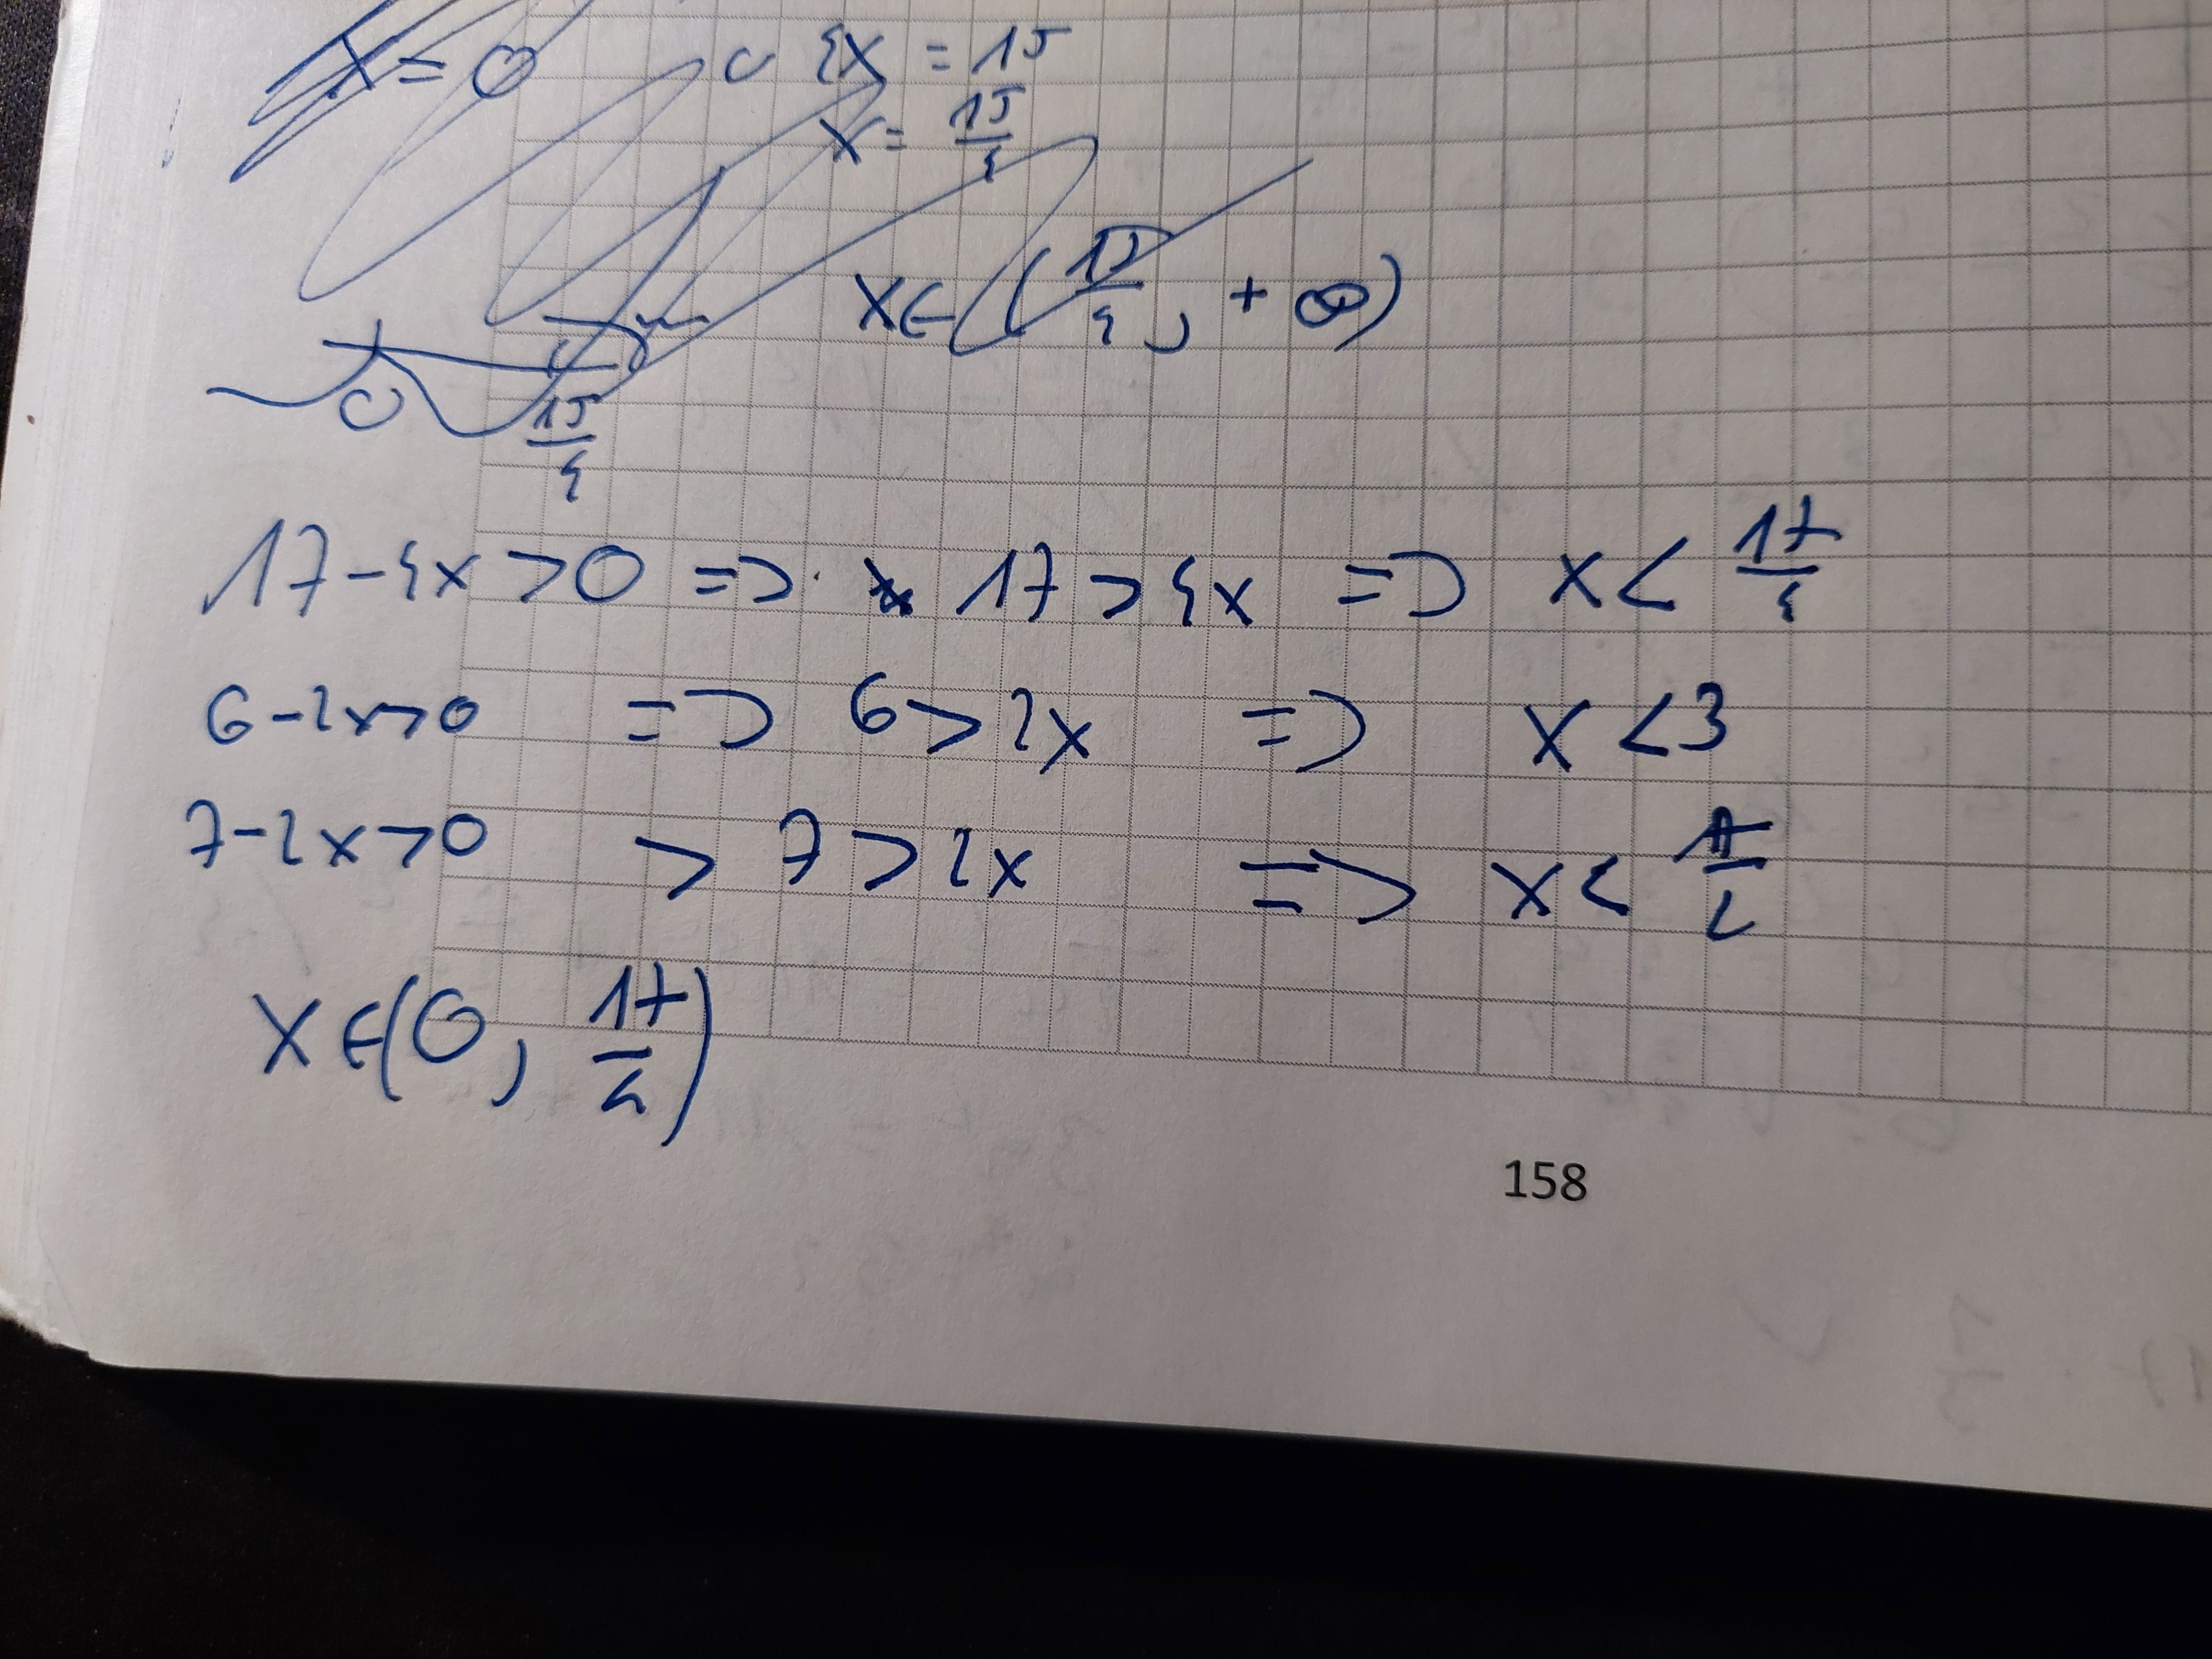 X = 0 4x = 15
x = 15/4
x ∈ (15/4, + ∞)
0 15/4
17-4x > 0 => 17 > 4x => x < 17/4
6-2x>0 => 6 > 2x => x < 3
7-2x>0 > 7 > 2x => x < 7/2
x ∈ (0, 17/4)
158